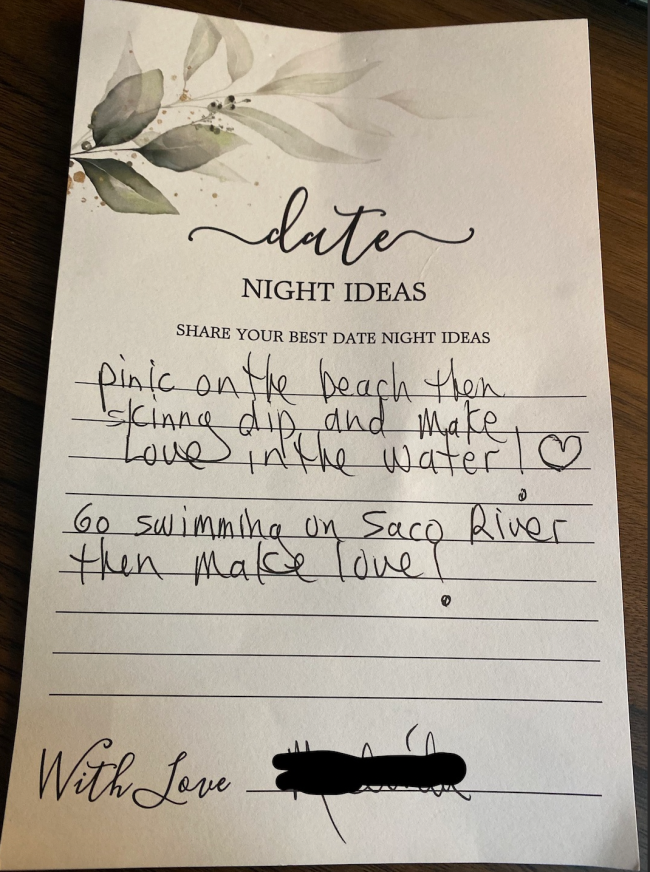 date
NIGHT IDEAS
SHARE YOUR BEST DATE NIGHT IDEAS
pinic on the beach then
skinny dip and make
Love in the water! ♡
Go swimming on Saco River
then make love!
With Love